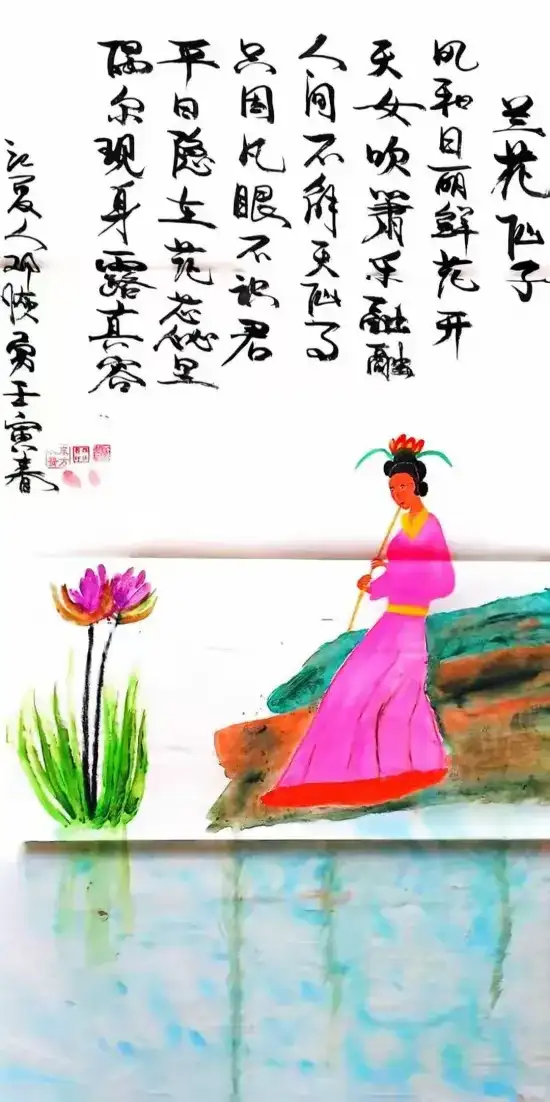 兰花仙子
风和日丽鲜花开
天女吹箫乐融融
人间不解天仙
只因凡眼不识君
平日隐在花芯里
偶尔现身露真容
江夏人邓勇壬寅春